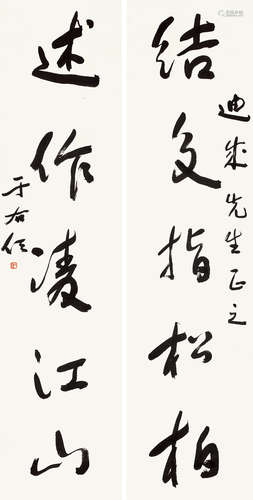 结交指松柏
迪生先生正之
述作凌江山
于右任